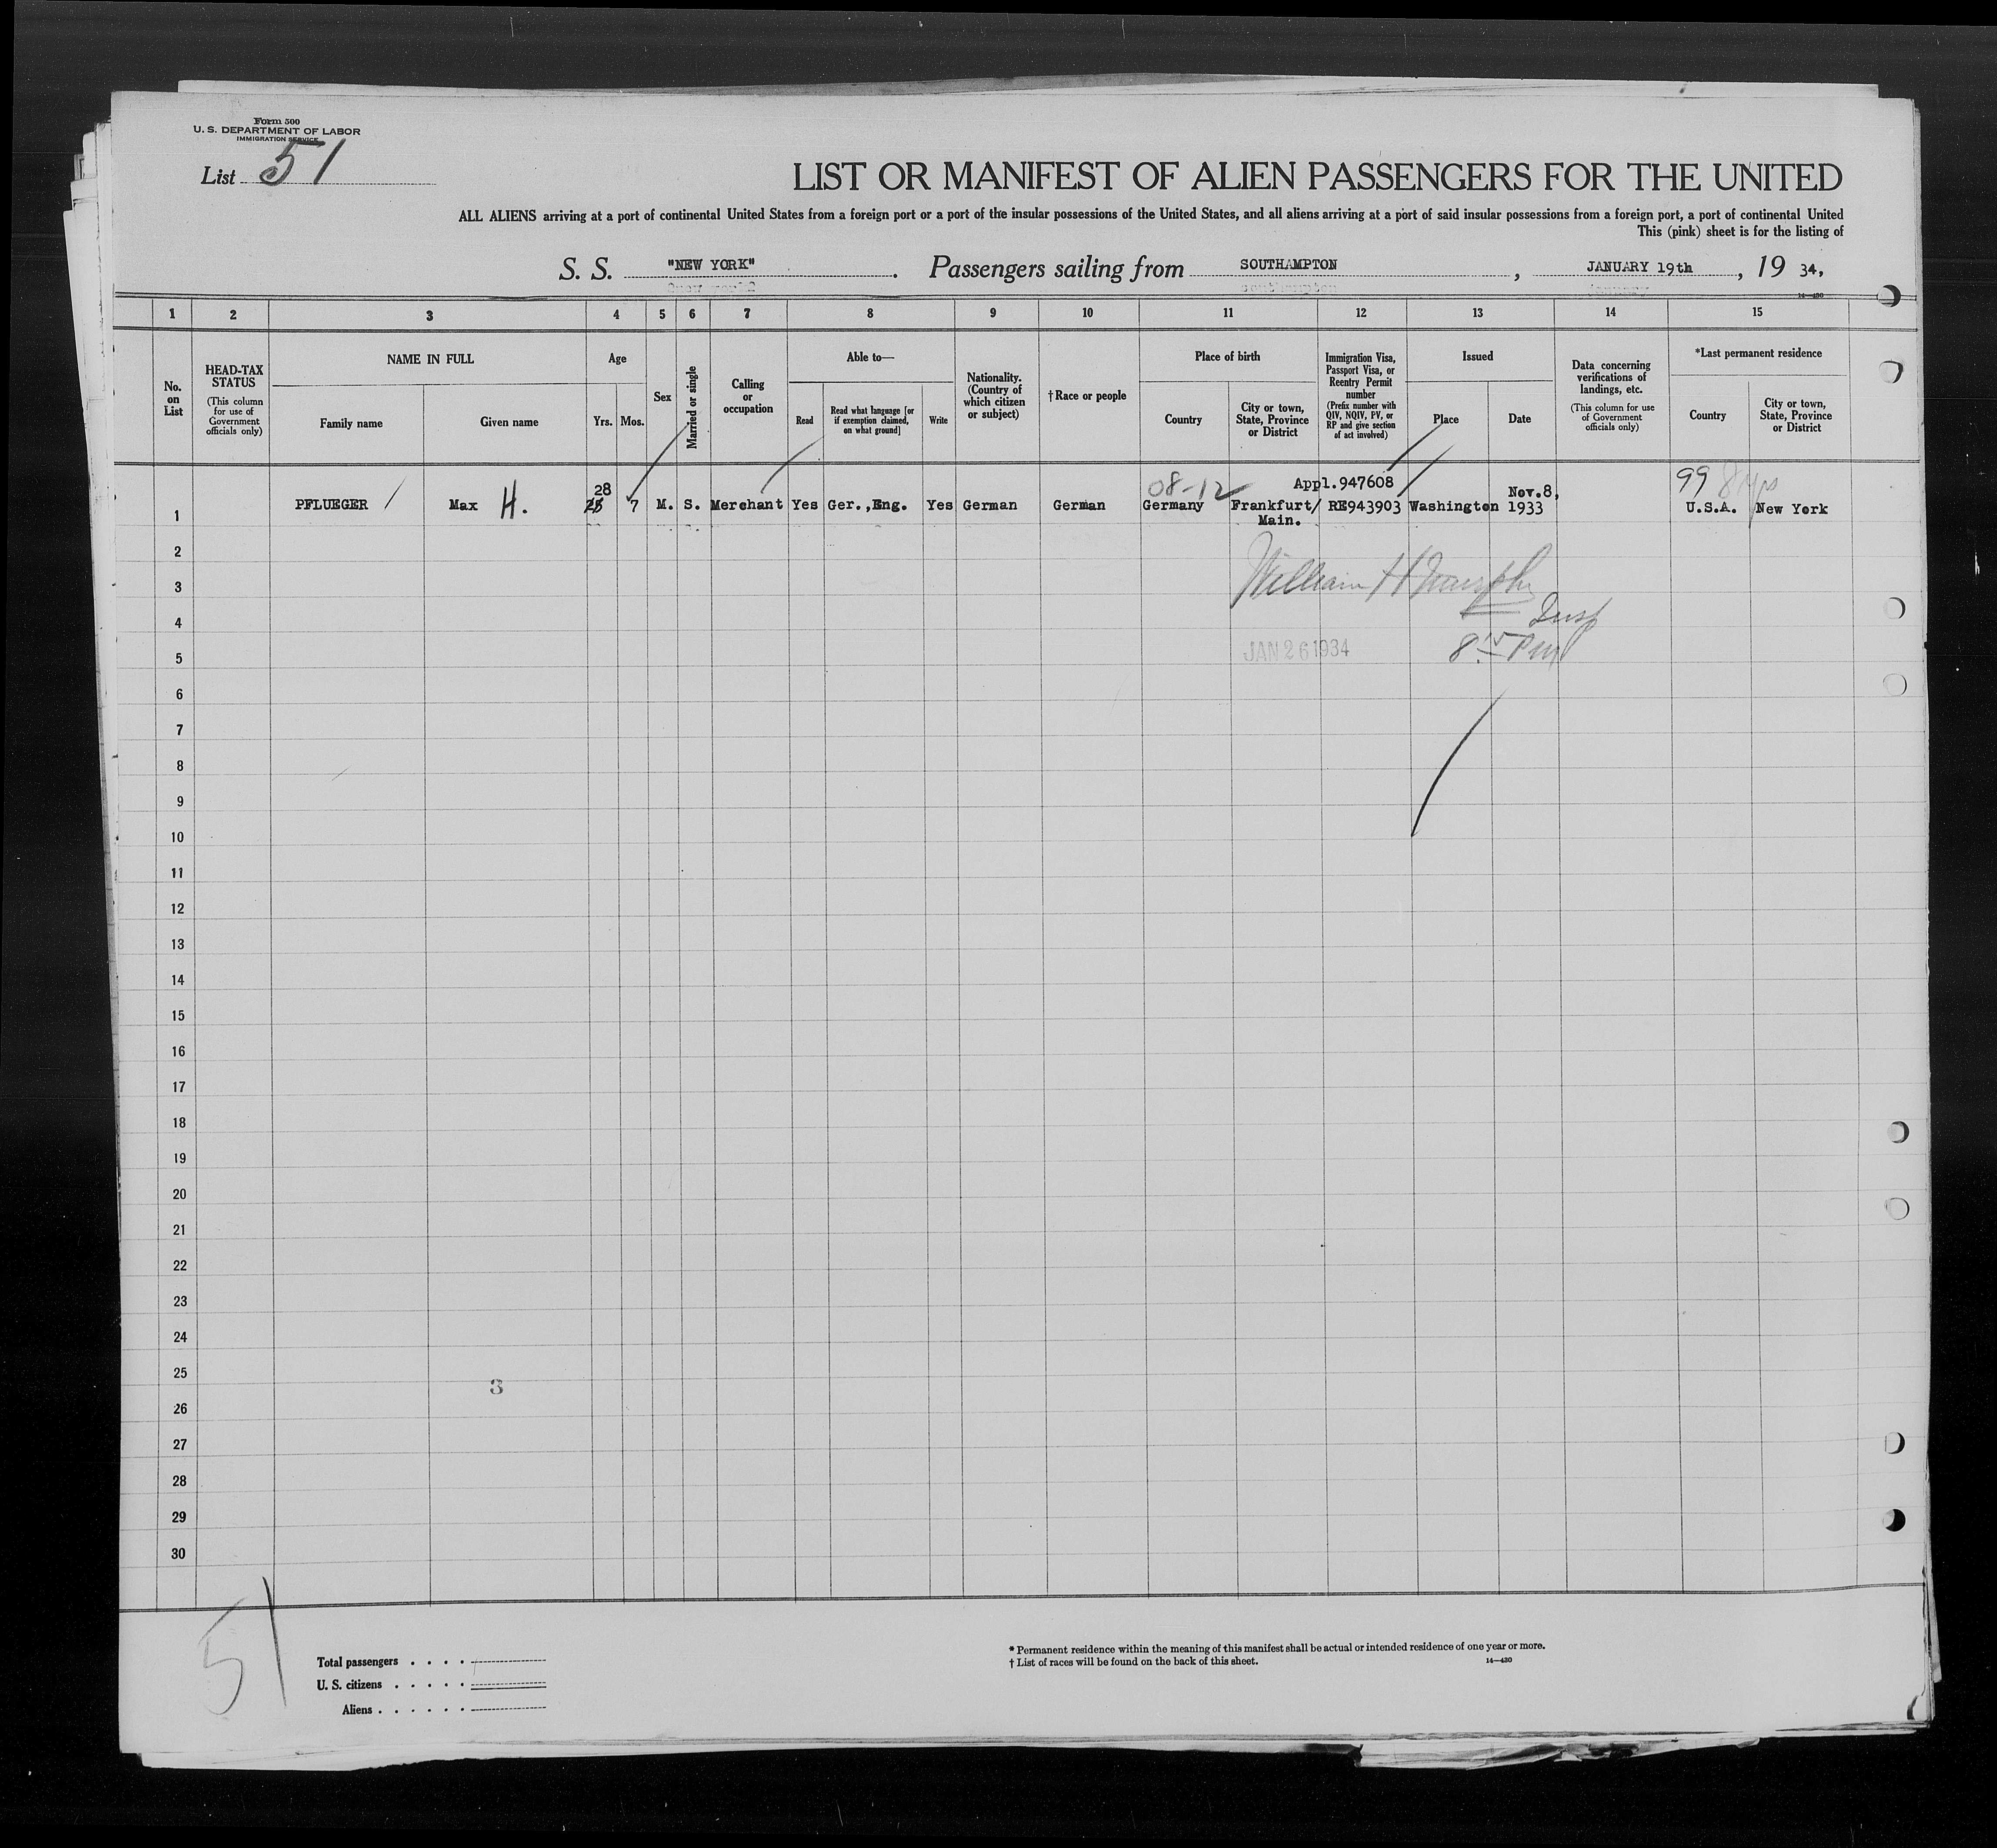 Form 500
U. S. DEPARTMENT OF LABOR
IMMIGRATION SERVICE
List 51
LIST OR MANIFEST OF ALIEN PASSENGERS FOR THE UNITED
ALL ALIENS arriving at a port of continental United States from a foreign port or a port of the insular possessions of the United States, and all aliens arriving at a port of said insular possessions from a foreign port, a port of continental United
This (pink) sheet is for the listing of
S. S. "NEW YORK" . Passengers sailing from SOUTHAMPTON , JANUARY 19th , 19 34,
14—430
1 2 3 4 5 6 7 8 9 10 11 12 13 14 15
No. on List
HEAD-TAX STATUS
(This column for use of Government officials only)
NAME IN FULL
Family name
Given name
Age
Yrs.
Mos.
Sex
Married or single
Calling or occupation
Able to—
Read
Read what language [or if exemption claimed, on what ground]
Write
Nationality. (Country of which citizen or subject)
† Race or people
Place of birth
Country
City or town, State, Province or District
Immigration Visa, Passport Visa, or Reentry Permit number
(Prefix number with QIV, NQIV, PV, or RP and give section of act involved)
Issued
Place
Date
Data concerning verifications of landings, etc.
(This column for use of Government officials only)
*Last permanent residence
Country
City or town, State, Province or District
28 08-12 Appl.947608 Nov.8, 99
1 PFLUEGER Max H. 7 M. S. Merchant Yes Ger.,Eng. Yes German German Germany Frankfurt/ RE943903 Washington 1933 U.S.A. New York
Main.
2
3 William H Murphy
4 Insp
5 JAN 26 1934 8 15 PM
6
7
8
9
10
11
12
13
14
15
16
17
18
19
20
21
22
23
24
25
3
26
27
28
29
30
51
Total passengers . . . .
U. S. citizens . . . . .
Aliens . . . . . .
* Permanent residence within the meaning of this manifest shall be actual or intended residence of one year or more.
† List of races will be found on the back of this sheet. 14—430